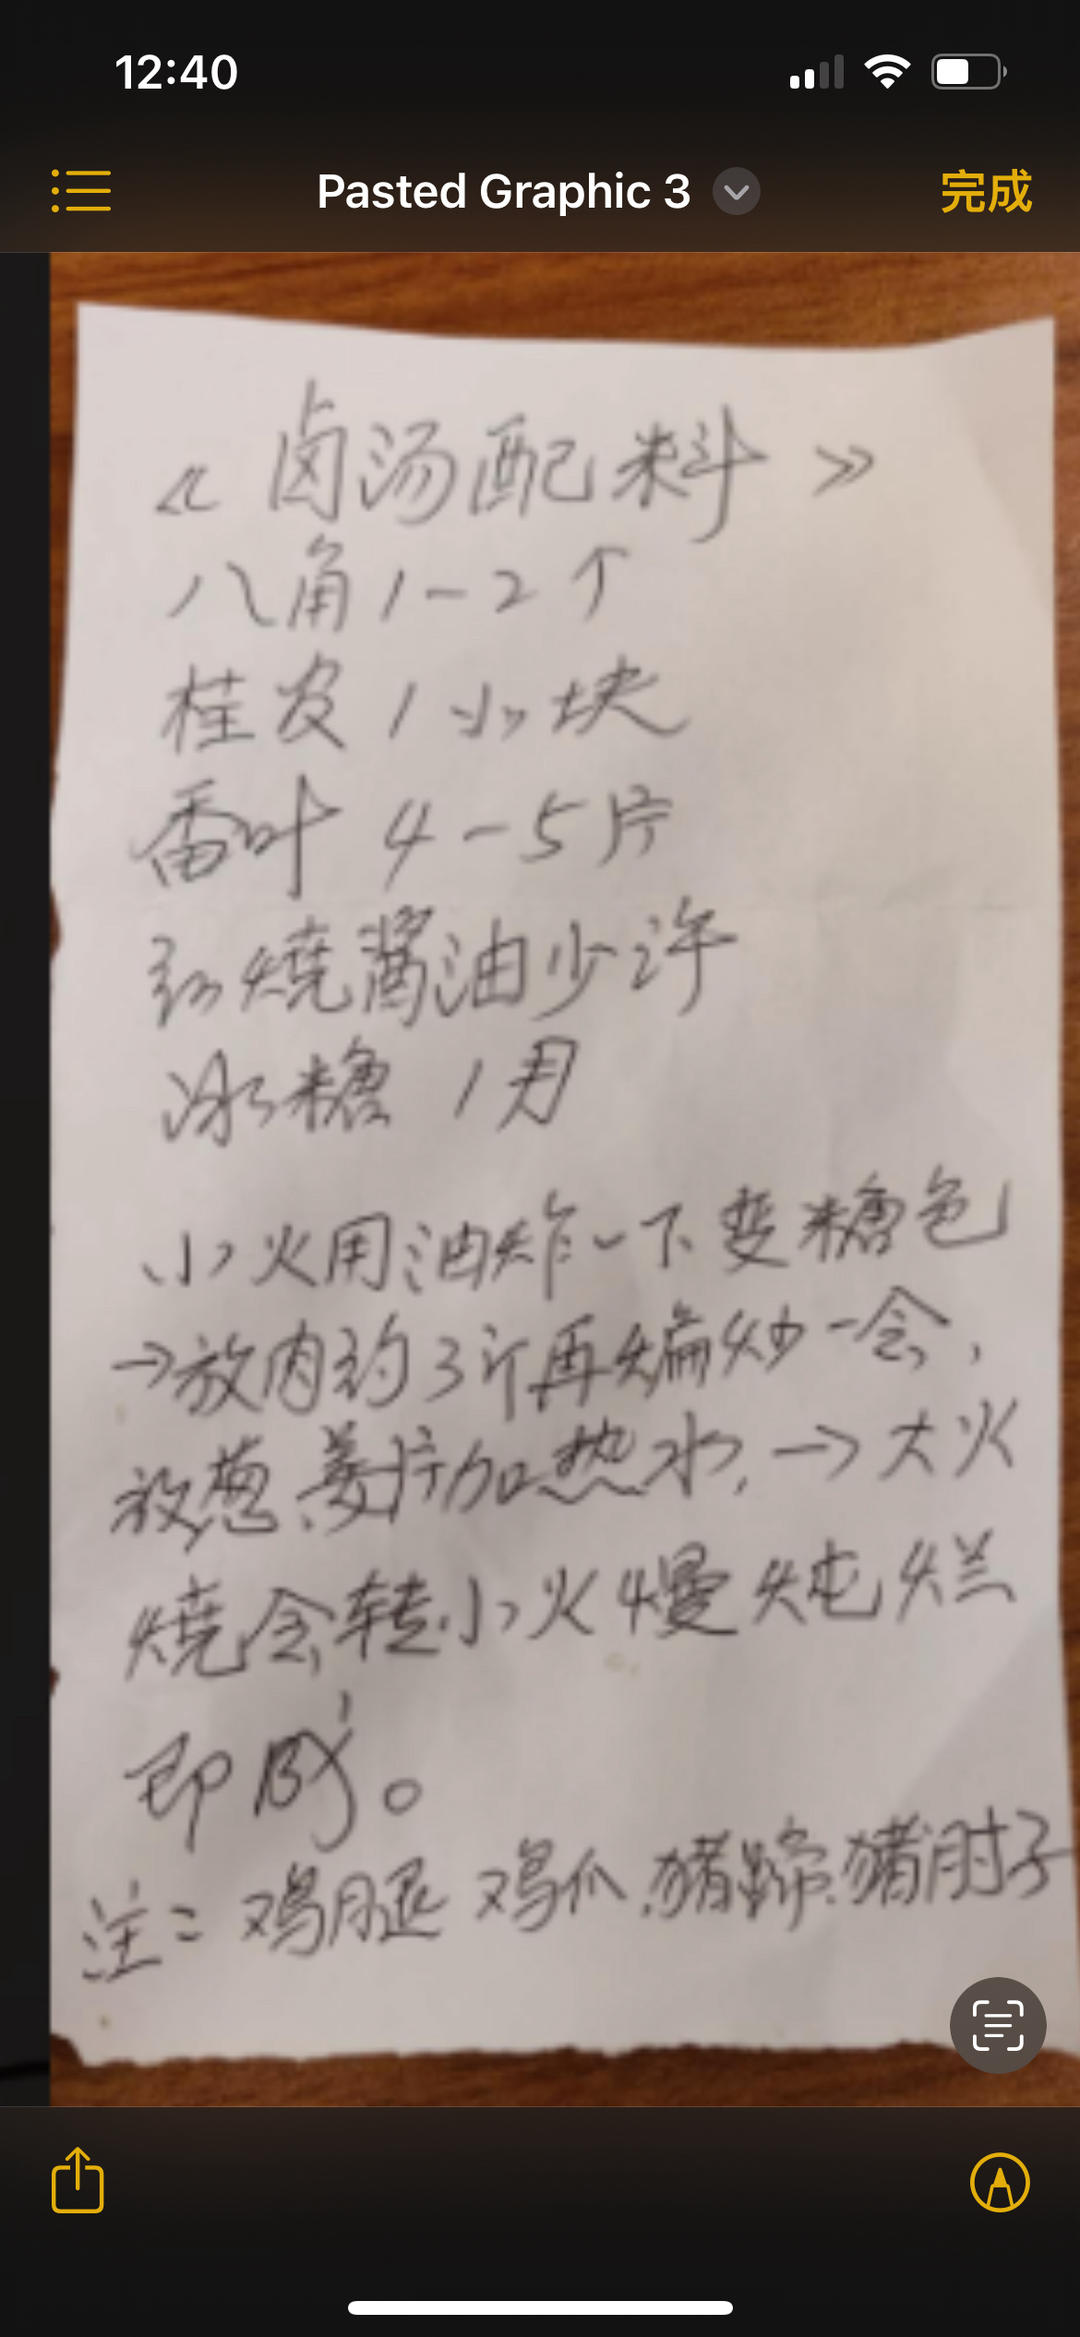 12:40
Pasted Graphic 3
完成
《卤汤配料》
八角1-2个
桂皮1小块
香叶4-5片
红烧酱油少许
冰糖1
小火用油炸一下变糖色
→放肉约3斤再煸炒一会,
放葱、姜片加热水,→大火
烧会转小火慢炖烂
即成。
注:鸡腿 鸡爪、猪蹄、猪肘子